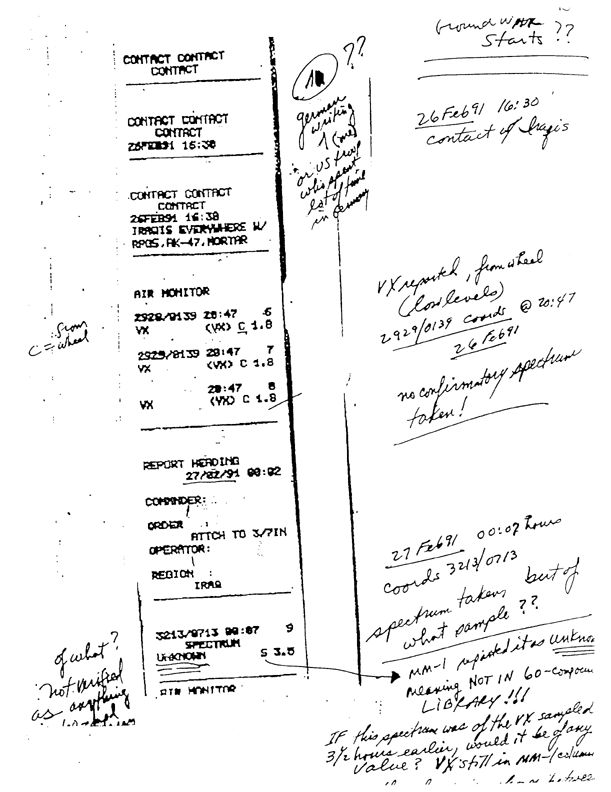 Ground WAR
Starts ??
??
CONTACT CONTACT
CONTACT
german
writing
1 (one)
or US troop
who spent
lot of time
in Germany
26 Feb 91 16:30
contact of Iraqis
CONTACT CONTACT
CONTACT
26FEB91 16:30
CONTACT CONTACT
CONTACT
26FEB91 16:30
IRAQIS EVERYWHERE W/
RPGS, AK-47, MORTAR
VX reported, from wheel
(low levels)
2929/0139 coords @ 20:47
26 Feb 91
no confirmatory spectrum
taken!
AIR MONITOR
2929/0139 20:47 6
VX (VX) C 1.8
2929/0139 20:47 7
VX (VX) C 1.8
20:47 8
VX (VX) C 1.8
from
C = wheel
REPORT HEADING
27/02/91 00:02
COMMNDER:
ORDER :
ATTCH TO 3/7IN
OPERATOR:
REGION :
IRAQ
3213/0713 00:07 9
SPECTRUM
UNKNOWN S 3.5
AIR MONITOR
of what?
not verified
as anything
27 Feb 91 00:07 hours
coords 3213/0713
spectrum taken, but of
what sample ??
MM-1 reported it as unkno
meaning NOT IN 60-compou
LIBRARY !!!
IF this spectrum was of the VX sampled
3½ hours earlier, would it be of any
value? VX still in MM-1 column